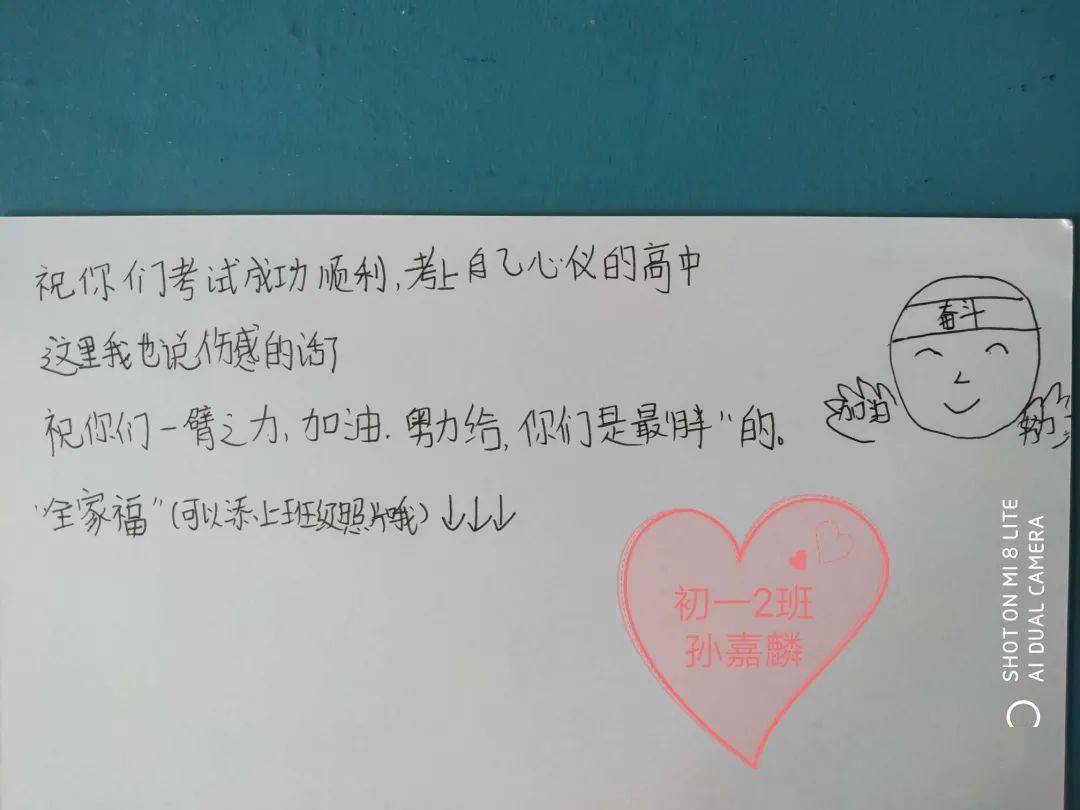 祝你们考试成功顺利,考上自己心仪的高中
奋斗
这里我也说伤感的话了
加油
祝你们一臂之力,加油.奥力给,你们是最“胖”的。
“全家福”(可以添上班级照片哦)↓↓↓
初一2班
孙嘉麟
SHOT ON MI 8 LITE
AI DUAL CAMERA